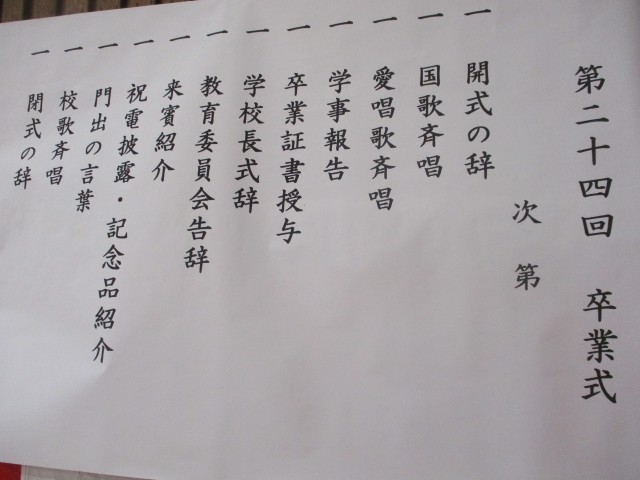 第二十四回 卒業式
次第
一 開式の辞
一 国歌斉唱
一 愛唱歌斉唱
一 学事報告
一 卒業証書授与
一 学校長式辞
一 教育委員会告辞
一 来賓紹介
一 祝電披露・記念品紹介
一 門出の言葉
一 校歌斉唱
一 閉式の辞